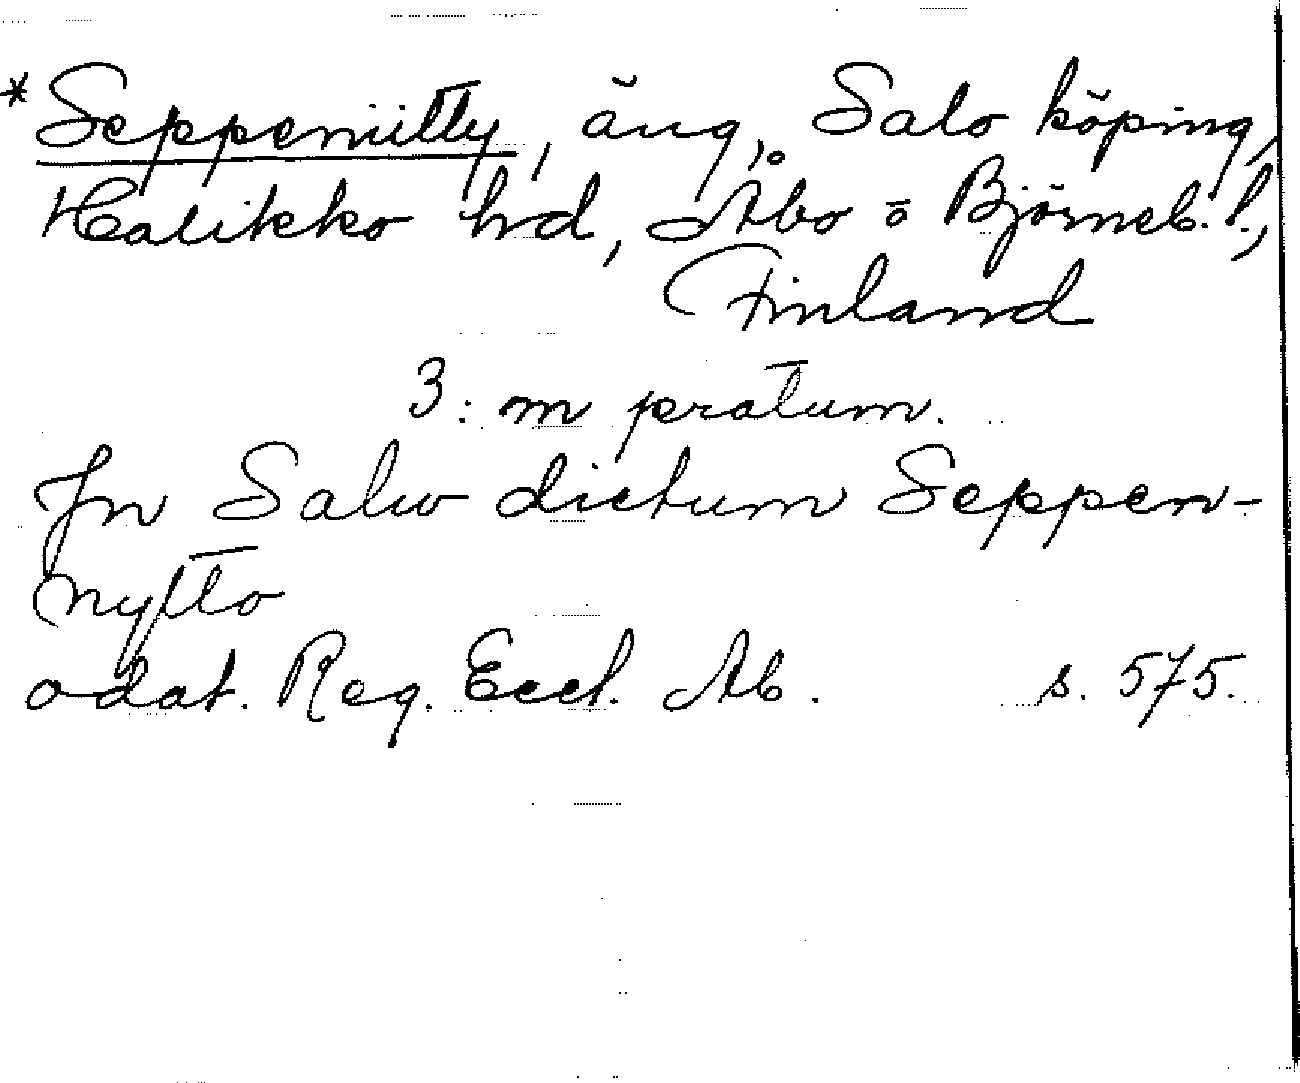 * Seppeniitty, äng, Salo köping,
Halikko hrd, Åbo o Björneb. l.,
Finland
3: m pratum.
In Salw dictum Seppen-
nytto
odat. Reg. Eccl. Ab. s. 575.